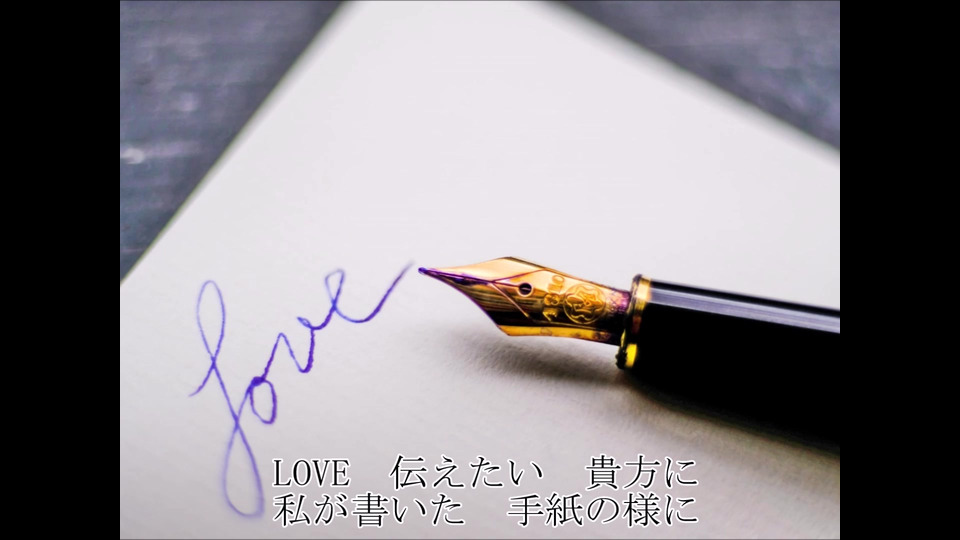 love
LOVE　伝えたい　貴方に
私が書いた　手紙の様に